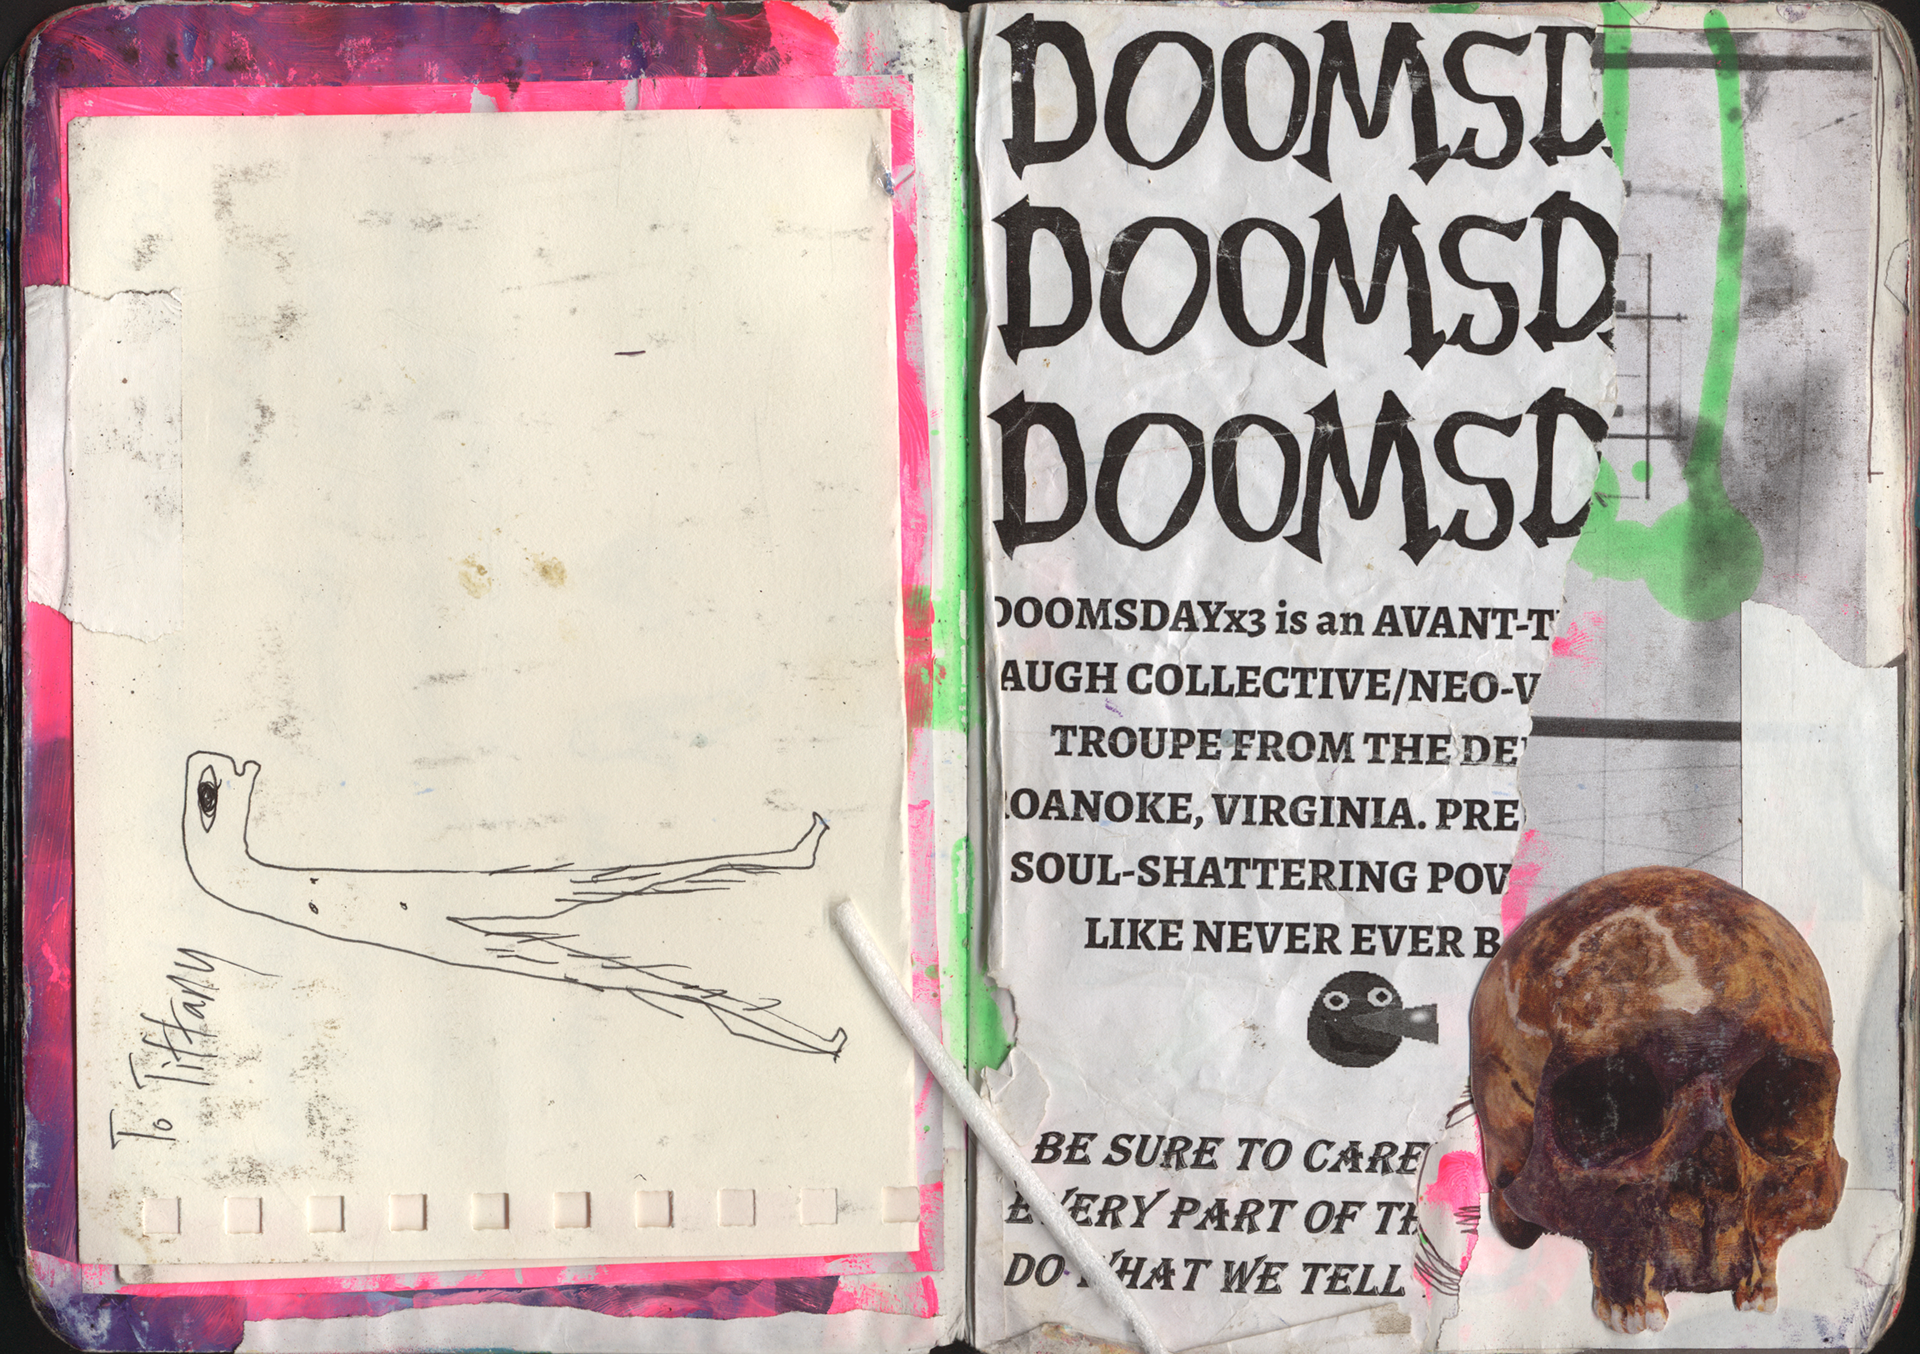 To Tiffany
DOOMSD
DOOMSD
DOOMSD
DOOMSDAYx3 is an AVANT-T
AUGH COLLECTIVE/NEO-V
TROUPE FROM THE DE
ROANOKE, VIRGINIA. PRE
SOUL-SHATTERING POV
LIKE NEVER EVER B
BE SURE TO CARE
EVERY PART OF TH
DO WHAT WE TELL